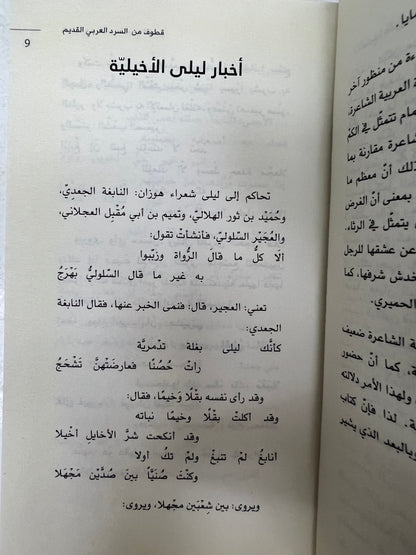 قطوف من السرد العربي القديم
9
أخبار ليلى الأخيليّة
تحاكم إلى ليلى شعراء هوزان: النابغة الجعديّ،
وحُمَيْد بن ثور الهلاليّ، وتميم بن أبي مُقْبِل العجلاني،
والعُجَيْر السلوليّ، فأنشأتْ تقول:
ألا كلُّ ما قالَ الرُّواة وزبّبوا
به غير ما قال السلوليُّ بَهْرَجُ
تعني: العجير، قال: فنمى الخبر عنها، فقال النابغة
الجعديّ:
كأنّك ليلى بغلة تدْمريَّة
رأتْ حُصُنًا فعارضَتْهنَّ تَشْحَجُ
وقد رأى نفسه بَقْلًا وَخيمًا، فقال:
وقد أكلتْ بقْلًا وخيمًا نباته
وقد أنكحت شرَّ الأخايل أخْيلا
أنابغُ لمْ تنبغْ ولمْ تكُ أولا
وكُنْتَ صُنَيًّا بينَ صُدَّيْن مَجْهَلا
ويروى: بين شِعْبَين مجْهلا، ويروى:
ءة من منظور آخر
العربية الشاعرة،
تتمثّل في الكمّ
شاعرة مقارنة بما
ذلك أنّ معظم ما
بمعنى أنّ الغرض
يتمثّل في الرثاء،
عن عشقها للرجل
خدش شرفها، كما
الحميري.
ة الشاعرة ضعيف
كما أنّ حضور
ولهذا الأمر دلالته
ة. لذا فإنّ كتاب
وبالبعد الذي يشير